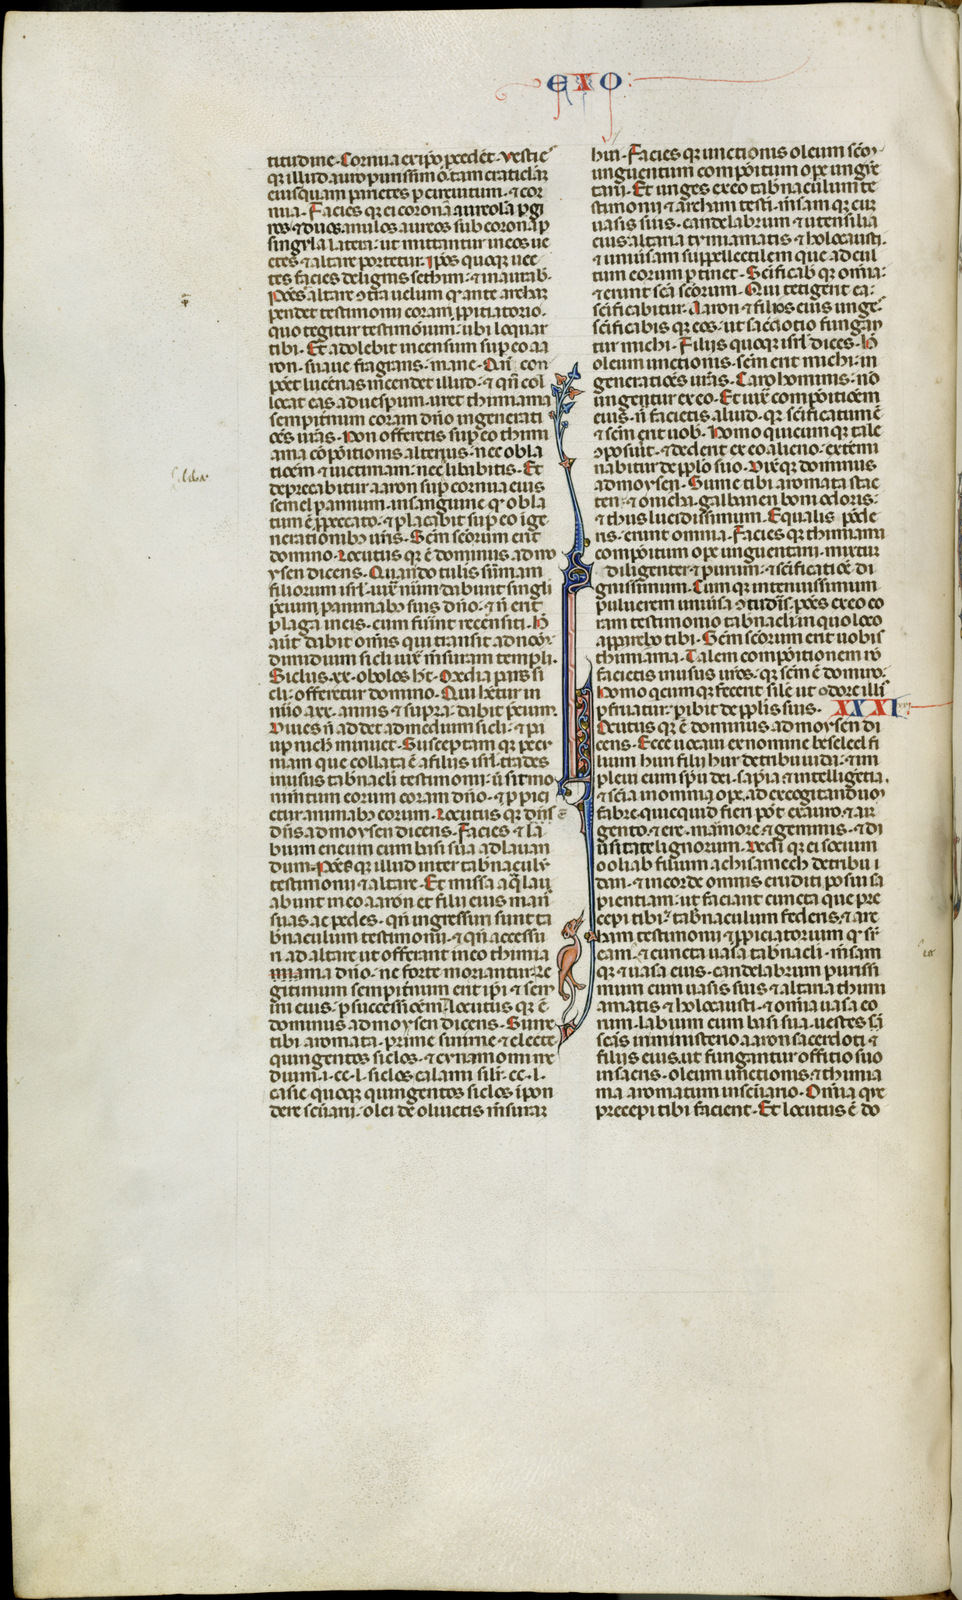 EXO
titudine. Cornua ex ipo p̄cedēt. Vestie
q̄ illud auro purissimo. tam craticlā ei
eiusquam parietes p̄ circuitum. ⁊ cor
nua. Facies q̄ ei coronā aureolā p̄ gi
ros ⁊ duos anulos aureos sub corona p̄
singula latera: ut mittantur in eos ue
ctes ⁊ altare portetur. Ipos quoq̄ uec
tes facies de lignis sethim: ⁊ inaurab.
Ponesq̄ altare ↄtra uelum q̄ ante archā
pendet testimonii coram p̄pitiatorio.
quo tegitur testimonium: ubi loquar
tibi. Et adolebit incensum sup eo aa
ron. suaue fragrans. mane. Qn̄ con
ponet lucernas incendet illud. ⁊ qn̄ col
locat eas ad uesp̄um. uret thimiama
sempit̄num coram dn̄o in generati
ōes ur̄as. Non offeretis sup eo thimi
ama cōpositionis alterius. nec obla
tiōem ⁊ uictimam. nec libabitis. Et
deprecabitur aaron sup cornua eius
semel p̄ annum. in sanguine q̄ obla
tum ē p̄ peccato. ⁊ placabit sup eo ī ge
nerationibꝫ ur̄is. Sc̄m sc̄orum erit
domino. Locutus q̄ ē dominus ad mo
ysen dicens. Quando tulis sūmam
filiorum isrl̄. iux̄ nūm dabunt singli
p̄cium p̄ animabꝫ suis dn̄o. ⁊ n̄ erit
plaga in eis. cum fuīnt recensiti. H̄
aūt dabit om̄is qui transit ad nom̄.
dimidium sicli iux̄ m̄suram templi.
Siclus. xx. obolos h̄t. Media pars si
cli. offeretur domino. Qui h̄etur in
nūo a xx. annis ⁊ supra: dabit p̄cium.
Diues n̄ addet ad medium sicli. ⁊ pau
up nichil minuet. Susceptam q̄ pecu
niam que collata ē a filiis isrl̄. trades
in usus tab̄nacli testimonii. ū sit mo
nim̄tum eorum coram dn̄o. ⁊ p̄picie
etur animabꝫ eorum. Locutus q̄ ē
dn̄s ad moysen dicens. Facies ⁊ la
bium eneum cum basi sua ad lauan
dum. Ponesq̄ illud inter tab̄naculū
testimonii ⁊ altare. Et missa aq̄ lau
abunt in eo aaron et filii eius man̄
suas ac pedes. qn̄ ingressuri sunt ta
b̄naculum testimonii. ⁊ qn̄ accessu
ri ad altare ut offerant in eo thimia
ma dn̄o. ne forte moriantur. Le
gitimum sempit̄num erit ip̄i ⁊ sem
ini eius. p̄ successiōem. Locutus q̄ ē
dominus ad moysen dicens. Sume
tibi aromata. prime smirne ⁊ electe
quingentos siclos. ⁊ cynamomi me
dium. i. cc. l. siclos. calami sil̄r. cc. l.
casie quoq̄ quingentos siclos in pon
dere sc̄uarii. olei de oliuetis m̄surā
hin. Facies q̄ unctionis oleum sc̄m
unguentum compositum ope ungue
tarii. Et unges ex eo tab̄naculum te
stimonii ⁊ archam testi. mēsam q̄ cū
uasis suis. candelabrum ⁊ utensilia
eius. altaria tymiamatis ⁊ holocausti.
⁊ uniu̇sam suppellectilem que ad cul
tum eorum p̄tinet. Sc̄ificab q̄ om̄ia:
⁊ erunt sc̄a sc̄orum. Qui tetigerit ea:
sc̄ificabitur. Aaron ⁊ filios eius unge
sc̄ificabis q̄ eos. ut sac̄dotio fungan
tur michi. Filiis quoq̄ isrl̄ dices. H̄
oleum unctionis. sc̄m erit michi. in
generatiōes ur̄as. Caro hominis. nō
ungentur ex eo. Et iux̄ compositiōem
eius. n̄ facietis aliud. q̄ sc̄ificatum ē
⁊ sc̄m erit uob. Homo quicumq̄ tale
ↄposuit. ⁊ dederit ex eo alieno. extermi
nabitur de pp̄lo suo. Dixitq̄ dominus
ad moysen. Sume tibi aromata stac
ten. ⁊ onicha. galbanen boni odoris:
⁊ thus lucidissimum. Equalis ponde
ris. erunt omnia. Facies q̄ thimiama
compositum ope unguentarii. mixtum
diligenter ⁊ purum. ⁊ sc̄ificatiōe di
gnissimum. Cum q̄ in tenuissimum
puluerem uniu̇sa ↄtuderis. pones ex eo co
ram testimonio tab̄nacli. in quo loco
apparebo tibi. Sc̄m sc̄orum erit uobis
thimiama. Talem compositionem nō
facietis in usus ur̄os. q̄ sc̄m ē domino.
Homo q̄cumq̄ fecerit sil̄e ut odore illi
p̄fruatur: p̄ibit de pp̄lis suis. XXXI
Locutus q̄ ē dominus ad moysen di
cens. Ecce uocaui ex nomine beseleel fi
lium huri filii hur de tribu iuda. ⁊ im
pleui eum sp̄u dei. sapīa ⁊ intelligētia.
⁊ sc̄ia in omni ope. ad excogitanduꝫ
fabre. quicquid fieri pōt ex auro. ⁊ ar
gento. ⁊ ere. marmore. ⁊ gemmis. ⁊ di
u̇sitate lignorum. Dedi q̄ ei socium
ooliab filium achisamech de tribu
dan. ⁊ in corde omnis eruditi posui sa
pientiam. ut faciant cuncta que pre
cepi tibi: tab̄naculum federis. ⁊ arc
ham testimonii ⁊ p̄piciatorium q̄ sr̄
eam. ⁊ cuncta uasa tab̄nacli. mēsam
q̄ ⁊ uasa eius. candelabrum purissi
mum cum uasis suis ⁊ altaria thimi
amatis ⁊ holocausti. ⁊ omīa uasa eo
rum. labium cum basi sua. uestes sā
sc̄as in ministerio aaron sacerdoti ⁊
filiis eius. ut fungantur offitio suo
in sac̄is. oleum unctionis ⁊ thimia
ma aromatum in sc̄uario. Omīa que
precepi tibi facient. Et locutus ē do